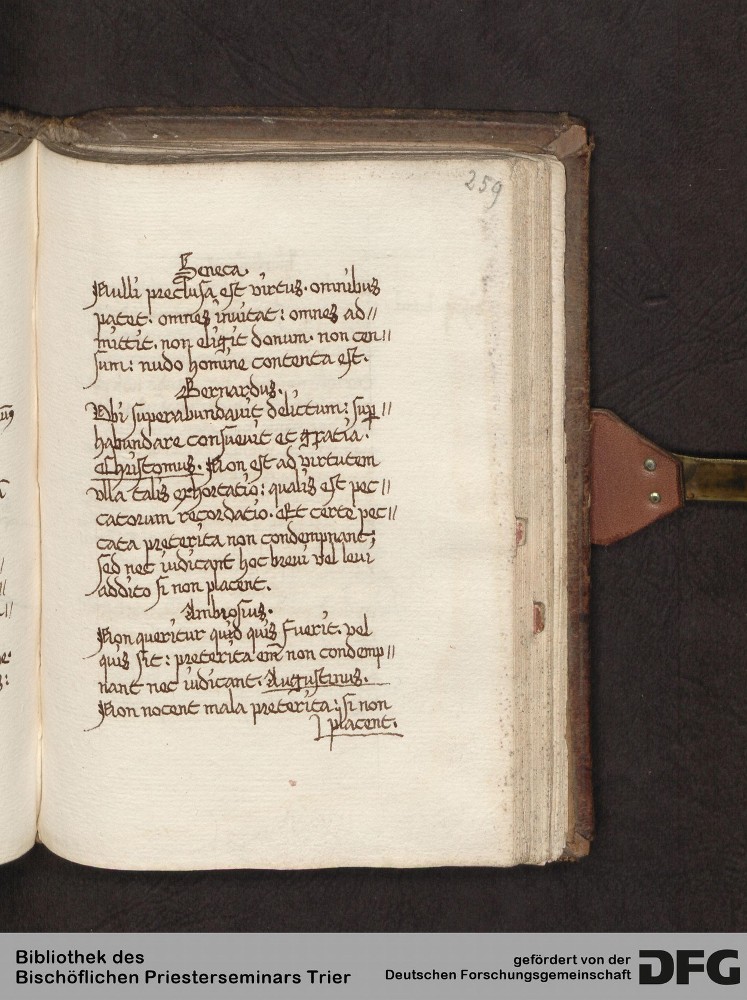 259
Seneca.
Nulli preclusa est virtus. omnibus
patet. omnes invitat: omnes ad//
mittit. non eligit donum. non cen//
sum: nudo homine contenta est.
Bernardus.
Vbi superabundauit delictum: sup//
habundare consueuit et gratia.
Christomus. Non est ad virtutem
vlla talis exhortatio: qualis est pec//
catorum recordatio. Et certe pec//
cata preterita non condempnant;
sed nec iudicant hoc breui vel leui
addito si non placent.
Ambrosius.
Non queritur quid quis fuerit. vel
quis sit: preterita em̄ non condemp//
nant nec iudicant. Augustinus.
Non nocent mala preterita: si non
placent.
Bibliothek des
Bischöflichen Priesterseminars Trier
gefördert von der
Deutschen Forschungsgemeinschaft DFG